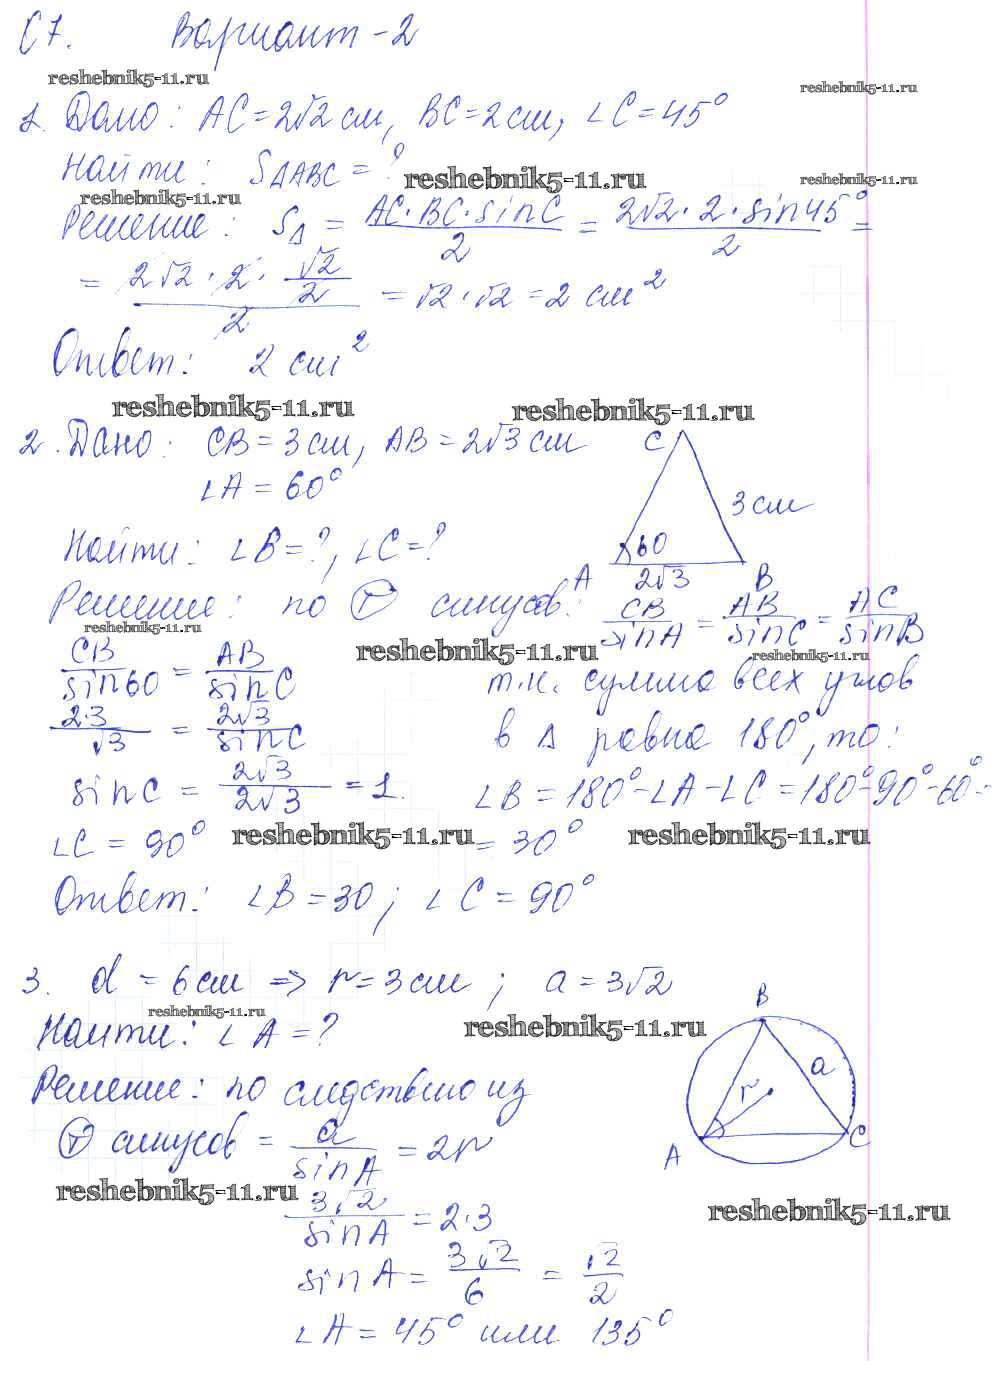 С7. Вариант-2
reshebnik5-11.ru
reshebnik5-11.ru
1. Дано: AC=2√2 см, BC=2 см, ∠C=45°
Найти: S△ABC=?
reshebnik5-11.ru
reshebnik5-11.ru
reshebnik5-11.ru
Решение: S△ = AC·BC·sinC/2 = 2√2·2·sin45°/2 =
= 2√2·2·√2/2/2 = √2·√2=2 см²
Ответ: 2 см²
reshebnik5-11.ru
reshebnik5-11.ru
2. Дано: CB=3 см, AB=2√3 см
∠A=60°
C
3 см
60
A 2√3 B
Найти: ∠B=?, ∠C=?
Решение: по Т синусов: CB/sinA = AB/sinC = AC/sinB
reshebnik5-11.ru
reshebnik5-11.ru
reshebnik5-11.ru
CB/sin60 = AB/sinC
т.к. сумма всех углов
2·3/√3 = 2√3/sinC
в △ равна 180°, то:
sinC = 2√3/2√3 = 1.
∠B=180°-∠A-∠C=180°-90°-60°=
∠C = 90°
reshebnik5-11.ru
= 30°
reshebnik5-11.ru
Ответ: ∠B=30; ∠C=90°
3. d=6см ⇒ r=3см; a=3√2
reshebnik5-11.ru
reshebnik5-11.ru
Найти: ∠A=?
B
a
r
A
C
Решение: по следствию из
Т синусов = a/sinA = 2r
reshebnik5-11.ru
reshebnik5-11.ru
3√2/sinA = 2·3
sinA = 3√2/6 = √2/2
∠A=45° или 135°